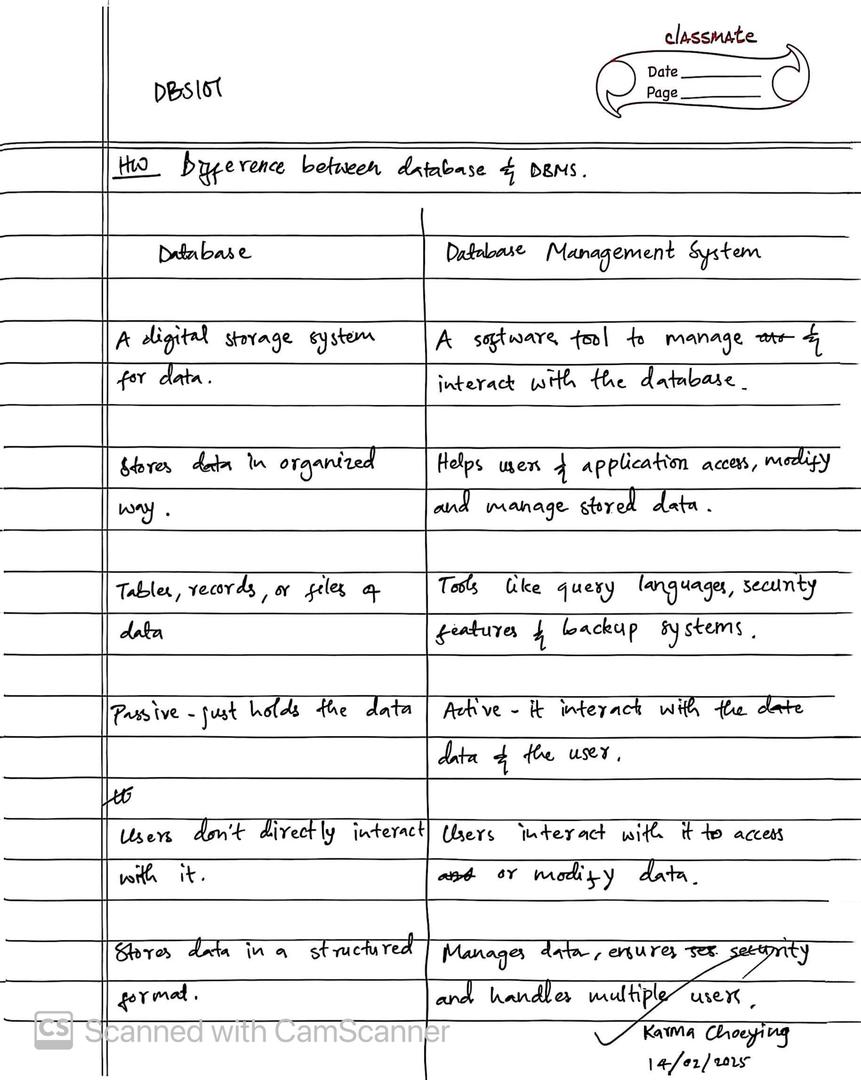 classmate
Date
Page
DBS101
HW Difference between database & DBMS.
Database
Database Management System
A digital storage system
for data.
A software tool to manage &
interact with the database.
Stores data in organized
way.
Helps users & application access, modify
and manage stored data.
Tables, records, or files of
data
Tools like query languages, security
features & backup systems.
Passive - just holds the data
Active - it interacts with the date
data & the user.
Users don't directly interact
with it.
Users interact with it to access
and or modify data.
Stores data in a structured
format.
Manages data, ensures security
and handles multiple users.
Karma Choeying
14/02/2025
CS Scanned with CamScanner